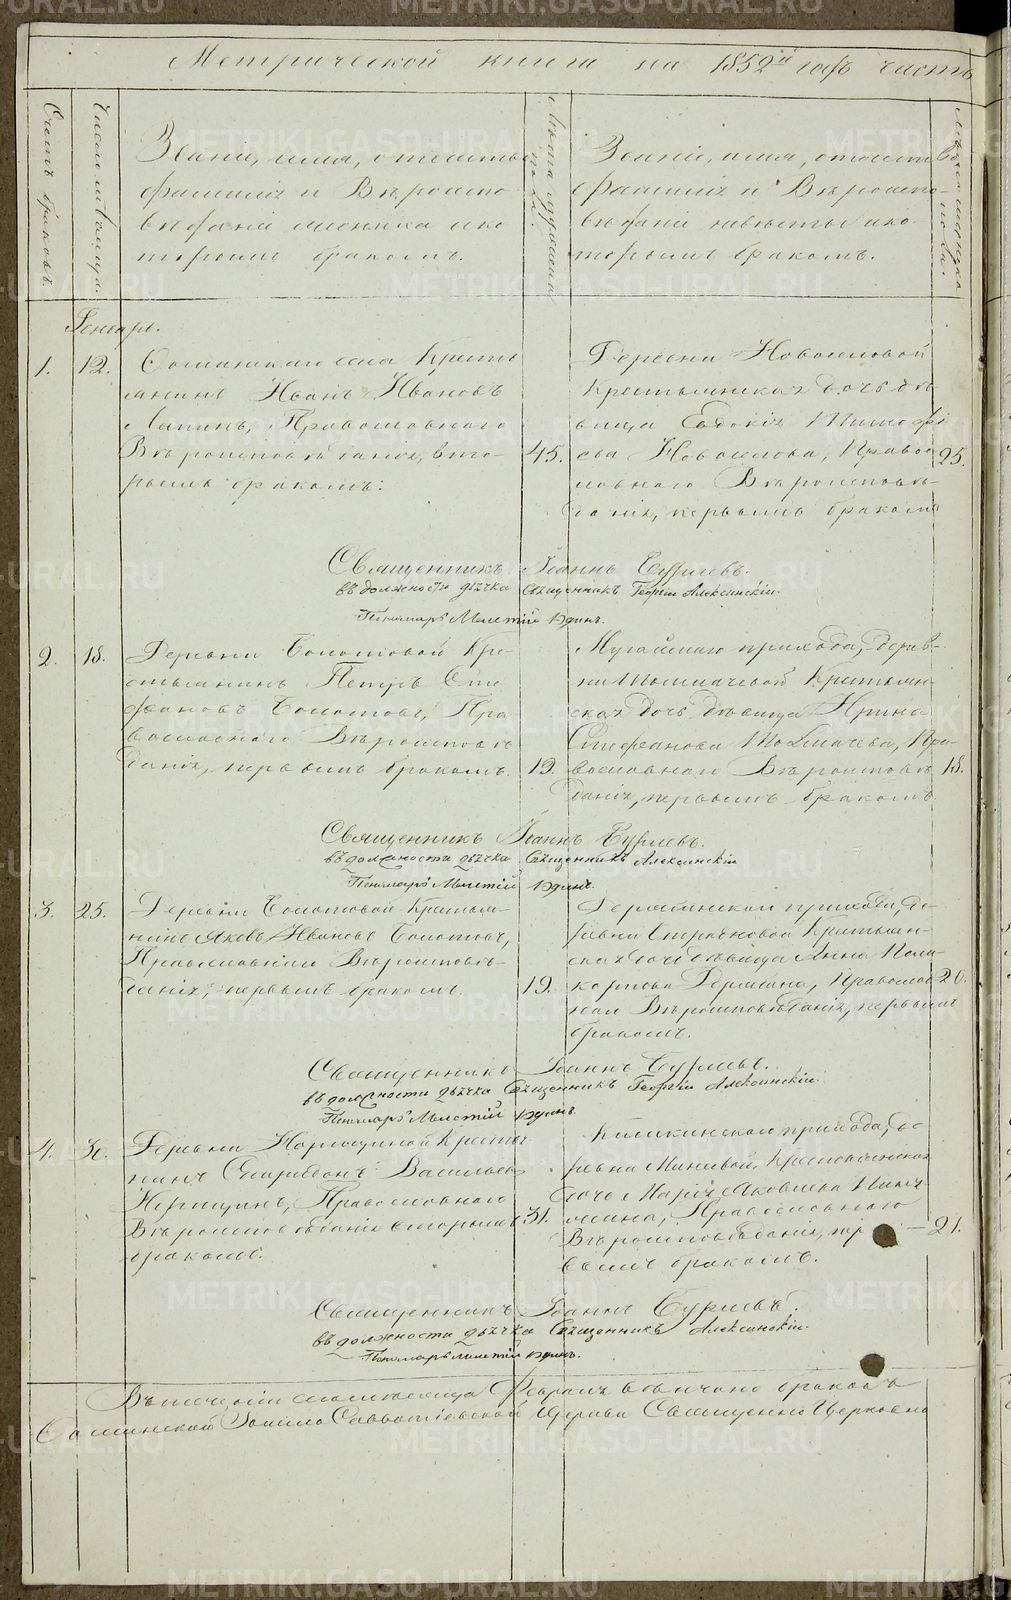 Метрической книги на 1852й годъ часть
Счетъ браковъ.
Число и мѣсяцъ.
Званіе, имя, отчество
фамилія и Вѣроиспо
вѣданіе жениха и ко
торымъ бракомъ.
Лѣта мужеска
пола.
Званіе, имя, отчество
фамилія и Вѣроиспо-
вѣданіе невѣсты и ко-
торымъ бракомъ.
Генваря.
1. 12. села Крестъ
янинъ Иванъ Ивановъ
Лапинъ, Православнаго
Вѣроисповѣданія, вто- 45.
рымъ бракомъ:
Деревни Новоселовой
Крестьянская дочь дѣ
вица Евдокія Тимофѣ
ева Новоселова, Правос 25.
лавнаго Вѣроисповѣ-
данія, первымъ бракомъ
Священникъ Іоаннъ
въ должности дьячка Священникъ Георгій Алексинскій
Пономарь Мелетій Юдинъ.
2. 18. Деревни Болотовой Кре
стьянинъ Петръ Сте
фановъ Болотовъ, Пра
вославнаго Вѣроисповѣ
данія, первымъ бракомъ. 19.
Мугайскаго прихода, Дерев-
ни Толмачевой Крестьян-
ская дочь дѣвица Ирина
Стефанова Толмачева, Пра-
вославнаго Вѣроисповѣ 18.
данія, первымъ бракомъ
Священникъ Іоаннъ
въ должности дьячка Священникъ Алексинскій
Пономарь Мелетій Юдинъ.
3. 25. Деревни Болотовой Крестья-
нинъ Яковъ Ивановъ Болотовъ,
Православнаго Вѣроисповѣ-
данія, первымъ бракомъ. 19.
прихода, де
ревни Крестьян-
ская дочь дѣвица Анна Поли-
карпова Православ 20.
ная Вѣроисповѣданія, первымъ
бракомъ.
Священникъ Іоаннъ
въ должности дьячка Священникъ Георгій Алексинскій
Пономарь Мелетій Юдинъ.
4. 30. Деревни Крестья
нинъ Спиридонъ Васильевъ
Православнаго
Вѣроисповѣданія вторымъ 31.
бракомъ.
прихода, де
ревни Крестьянская
дочь Марія Яковлева
Православнаго
Вѣроисповѣданія, пер — 21.
вымъ бракомъ.
Священникъ Іоаннъ
въ должности дьячка Священникъ Алексинскій.
Пономарь Мелетій Юдинъ.
Въ теченіи мѣсяца Февраля вѣнчано браковъ
Зосимо Савватіевской Церкви Священно Церковно
METRIKI.GASO-URAL.RU